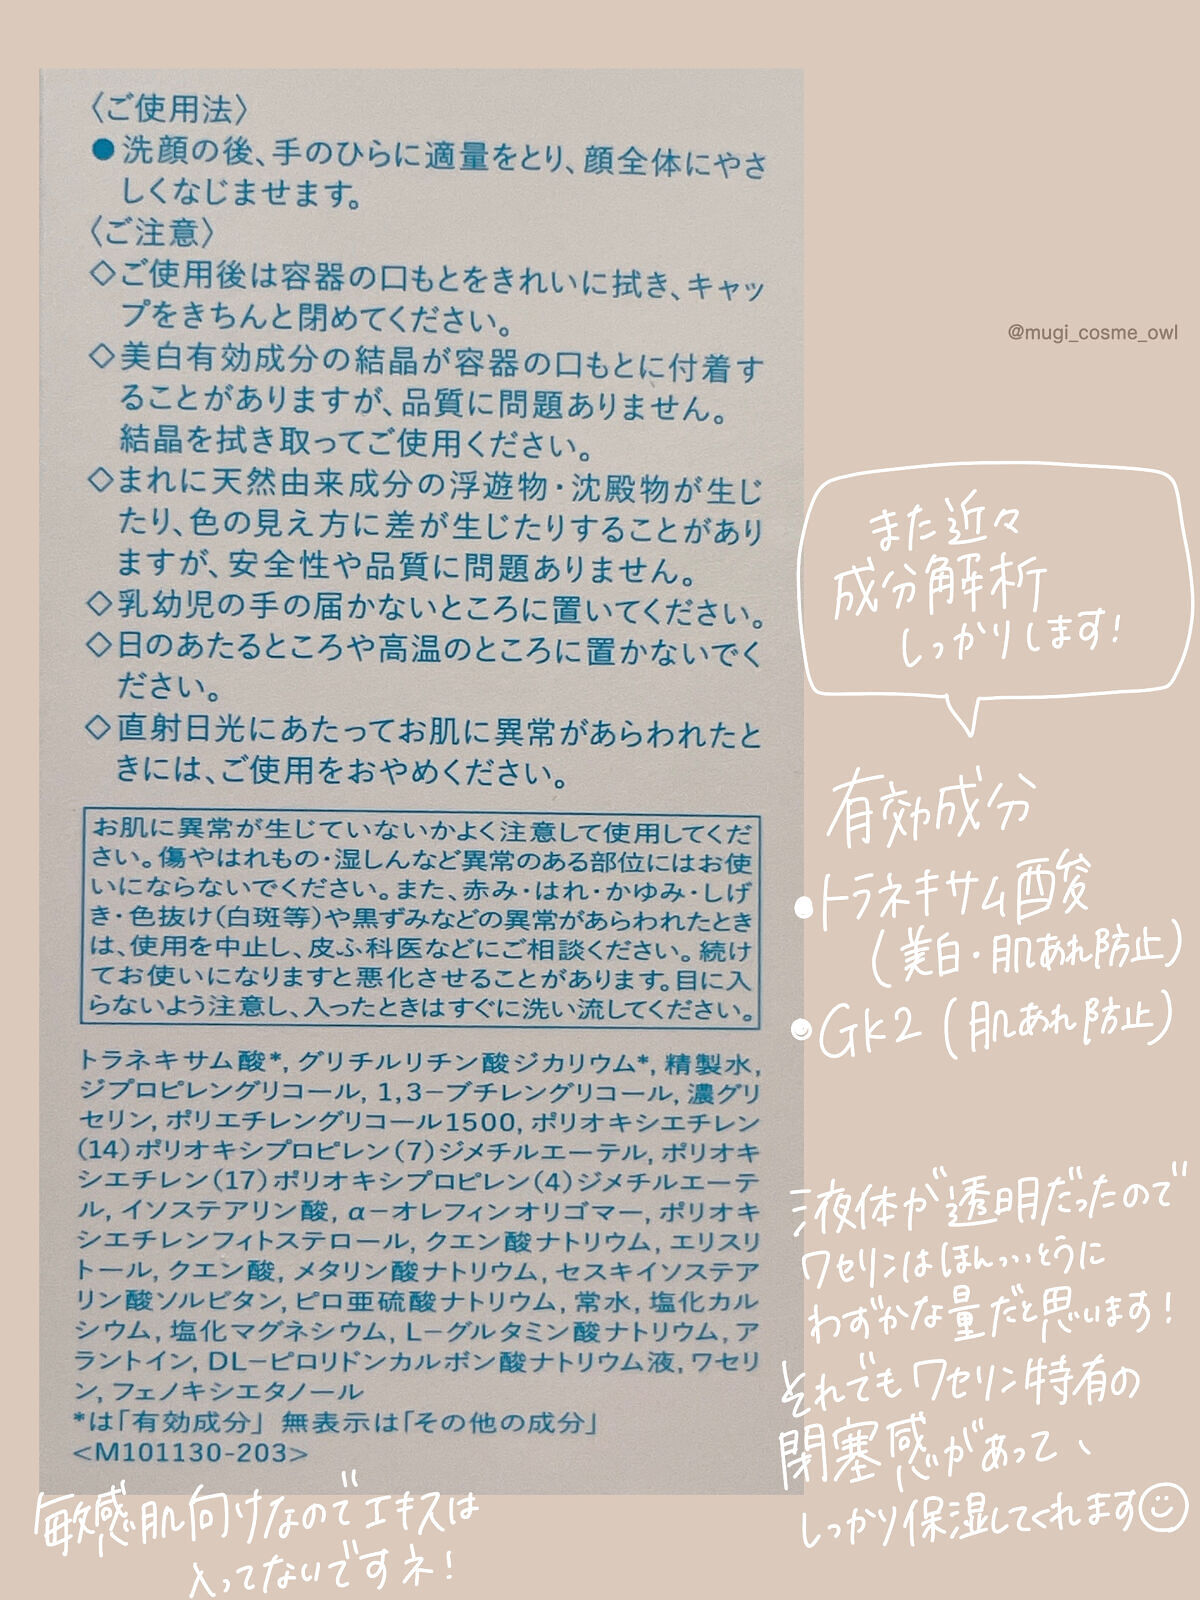 〈ご使用法〉
●洗顔の後、手のひらに適量をとり、顔全体にやさ
しくなじませます。
〈ご注意〉
◇ご使用後は容器の口もとをきれいに拭き、キャッ
プをきちんと閉めてください。
◇美白有効成分の結晶が容器の口もとに付着す
ることがありますが、品質に問題ありません。
結晶を拭き取ってご使用ください。
◇まれに天然由来成分の浮遊物・沈殿物が生じ
たり、色の見え方に差が生じたりすることがあり
ますが、安全性や品質に問題ありません。
◇乳幼児の手の届かないところに置いてください。
◇日のあたるところや高温のところに置かないでく
ださい。
◇直射日光にあたってお肌に異常があらわれたと
きには、ご使用をおやめください。
お肌に異常が生じていないかよく注意して使用してくだ
さい。傷やはれもの・湿しんなど異常のある部位にはお使
いにならないでください。また、赤み・はれ・かゆみ・しげ
き・色抜け(白斑等)や黒ずみなどの異常があらわれたとき
は、使用を中止し、皮ふ科医などにご相談ください。続け
てお使いになりますと悪化させることがあります。目に入
らないよう注意し、入ったときはすぐに洗い流してください。
トラネキサム酸*, グリチルリチン酸ジカリウム*, 精製水,
ジプロピレングリコール, 1,3−ブチレングリコール, 濃グリ
セリン, ポリエチレングリコール1500, ポリオキシエチレン
(14)ポリオキシプロピレン(7)ジメチルエーテル, ポリオキ
シエチレン(17)ポリオキシプロピレン(4)ジメチルエーテ
ル, イソステアリン酸, α−オレフィンオリゴマー, ポリオキ
シエチレンフィトステロール, クエン酸ナトリウム, エリスリ
トール, クエン酸, メタリン酸ナトリウム, セスキイソステア
リン酸ソルビタン, ピロ亜硫酸ナトリウム, 常水, 塩化カル
シウム, 塩化マグネシウム, L−グルタミン酸ナトリウム, ア
ラントイン, DL−ピロリドンカルボン酸ナトリウム液, ワセリ
ン, フェノキシエタノール
*は「有効成分」 無表示は「その他の成分」
<M101130-203>
敏感肌向けなのでエキスは
入ってないですネ!
@mugi_cosme_owl
また近々
成分解析
しっかりします!
有効成分
•トラネキサム酸
(美白・肌あれ防止)
•GK2 (肌あれ防止)
液体が透明だったので
ワセリンはほんっ…とうに
わずかな量だと思います!
それでもワセリン特有の
閉塞感があって、
しっかり保湿してくれます☺